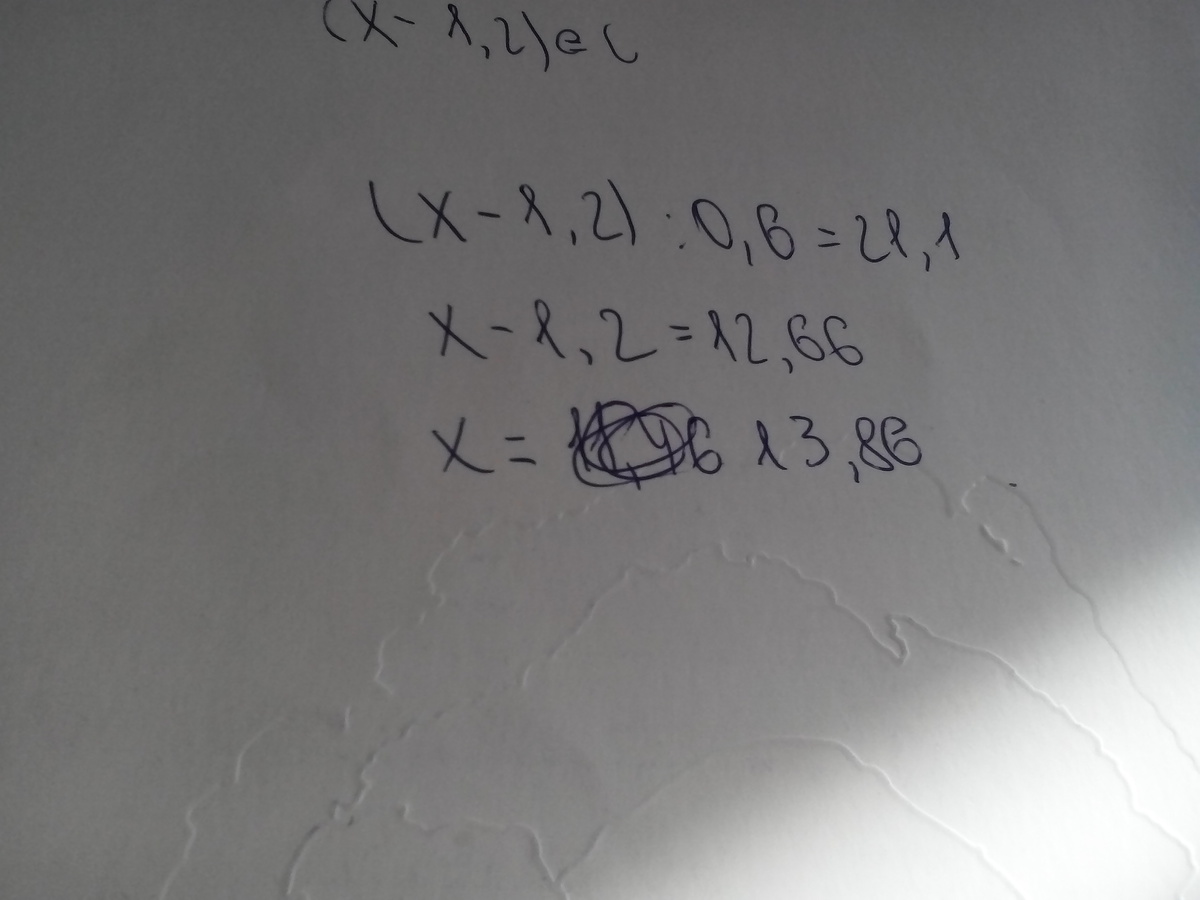 (x - 1,2) e (
(x - 1,2) : 0,6 = 21,1
x - 1,2 = 12,66
x = 13,86